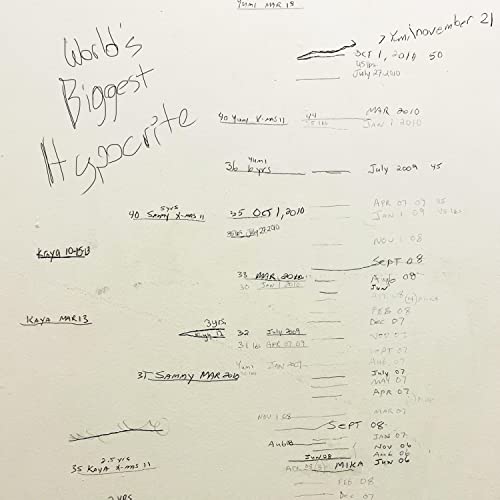 YUMI MAR 18
World's
Biggest
Hypocrite
November 21
OCT 1, 2010 50
July 27 2010
MAR 2010
40 Yumi X-mas 11 44 JAN 1 2010
Yumi
36 6 yrs July 2009 45
APR 07 09
5yrs
40 Sammy X-mas 11 35 OCT 1, 2010 JAN 1 09
July 27 2010
NOV 1 08
Kaya 10-15-13
SEPT 08
33 MAR 2010 Aug 08
30 JAN 1 2010 Jun
FEB 08
KAYA MAR 13 3yrs Dec 07
32 July 2009 NOV 07
31 lbs APR 07 09 SEPT 07
Yumi JAN 2009 AUG 07
37 Sammy MAR 2010 July 07
MAY 07
APR 07
NOV 1 08 MAR 07
SEPT 08
JAN 07
Aug 8 NOV 06
2.5 yrs Jun 08 Aug 06
35 Kaya X-mas 11 MIKA Jun 06
FEB 08
2 YRS Dec 07